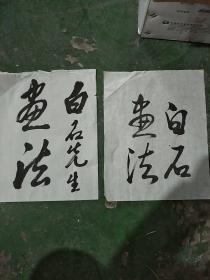 白石先生
画法
白石
画法